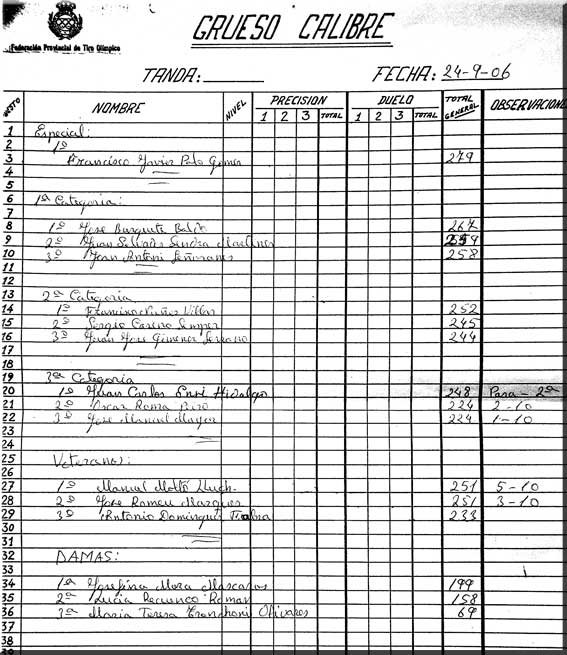 Federación Provincial de Tiro Olímpico
GRUESO CALIBRE
TANDA: FECHA: 24-9-06
PUESTO NOMBRE NIVEL PRECISION 1 2 3 TOTAL DUELO 1 2 3 TOTAL TOTAL GENERAL OBSERVACION
1 Especial:
2 1º
3 Francisco Javier Gomez 279
4
5
6 1ª Categoria:
7
8 1º Jose Burguete 267
9 2º Juan Sendra Martinez 259
10 3º Juan Antoni 258
11
12
13 2ª Categoria
14 1º Francisco Nuñez Villar 252
15 2º Sergio Semper 245
16 3º Juan Jose Gimenez Serrano 244
17
18
19 3ª Categoria
20 1º Juan Carlos Hidalgo 248 Pasa - 2ª
21 2º Oscar Roma 224 2-10
22 3º Jose Manuel Mayor 224 1-10
23
24
25 Veteranos:
26
27 1º Manuel Moltó Lluch 251 5-10
28 2º Jose Romeu Marques 251 3-10
29 3º Antonio Dominguez 233
30
31
32 DAMAS:
33
34 1ª Josefina Mora 199
35 2ª Lucia Recuenco Roman 158
36 3ª Maria Teresa Tronchoni Olivares 69
37
38
39